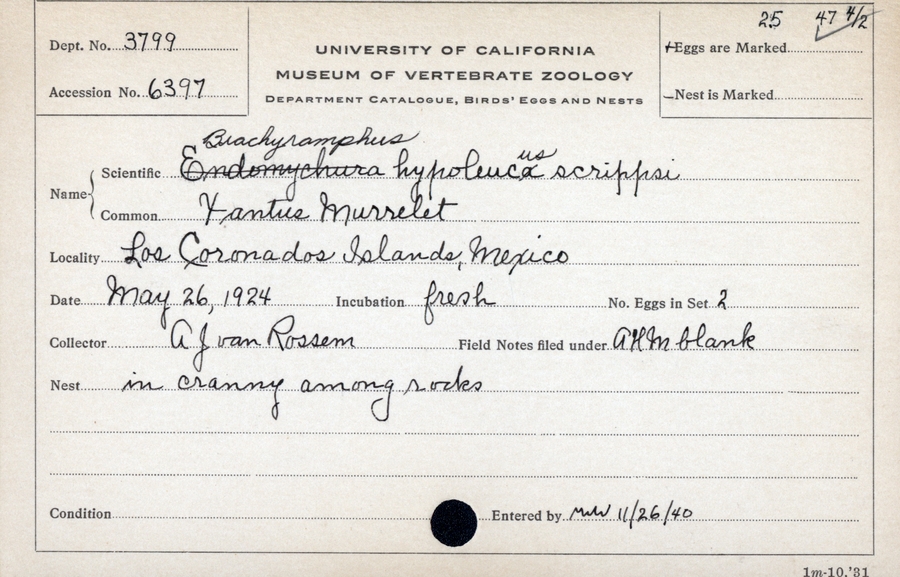 25 47 4/2
Dept. No. 3799
UNIVERSITY OF CALIFORNIA
+Eggs are Marked
MUSEUM OF VERTEBRATE ZOOLOGY
Accession No. 6397
DEPARTMENT CATALOGUE, BIRDS' EGGS AND NESTS
-Nest is Marked
Brachyramphus us
Name Scientific Endomychura hypoleuca scrippsi
Common Xantus Murrelet
Locality Los Coronados Islands, Mexico
Date May 26, 1924 Incubation fresh No. Eggs in Set 2
Collector A J van Rossem Field Notes filed under AHM blank
Nest in cranny among rocks
Condition Entered by 11/26/40
1m-10,'31